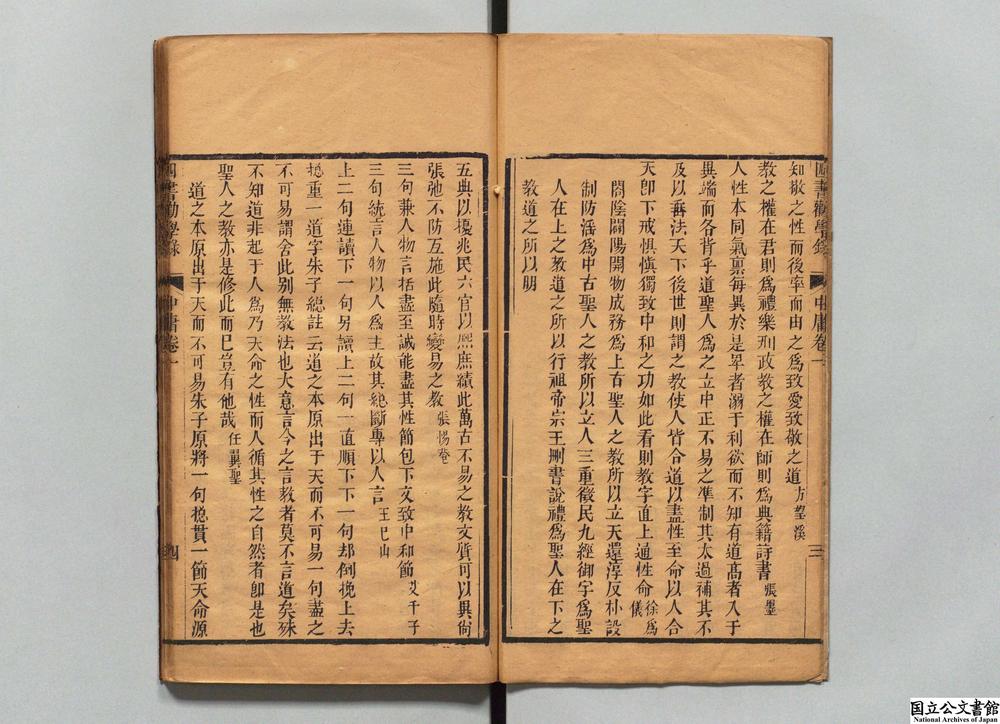 四書勸學錄 中庸卷一 三
知敬之性而後率而由之為致愛致敬之道方望溪
教之權在君則為禮樂刑政教之權在師則為典籍詩書張墨
人性本同氣稟每異於是卑者溺于利欲而不知有道高者入于
異端而各背乎道聖人為之立中正不易之準制其太過補其不
及以垂法天下後世則謂之教使人皆合道以盡性至命以人合
天即下戒懼慎獨致中和之功如此看則教字直上通性命徐為儀
闔陰闢陽開物成務為上古聖人之教所以立天還淳反朴設
制防淫為中古聖人之教所以立人三重徵民九經御宇為聖
人在上之教道之所以行祖帝宗王刪書說禮為聖人在下之
教道之所以朋
五典以擾兆民六官以熙庶績此萬古不易之教文質可以異尚
張弛不防互施此隨時變易之教張惕菴
三句兼人物言括盡至誠能盡其性節包下文致中和節艾千子
三句統言人物以人為主故其絕斷專以人言王巳山
上二句連讀下一句另讀上二句一直順下下一句却倒挽上去
揔重一道字朱子總註云道之本原出于天而不可易一句盡之
不可易謂舍此別無教法也大意言今之言教者莫不言道矣殊
不知道非起于人為乃天命之性而人循其性之自然者即是也
聖人之教亦是修此而巳豈有他哉任翼聖
道之本原出于天而不可易朱子原將一句揔貫一節天命源
四書勸學錄 中庸卷一 四
国立公文書館
National Archives of Japan